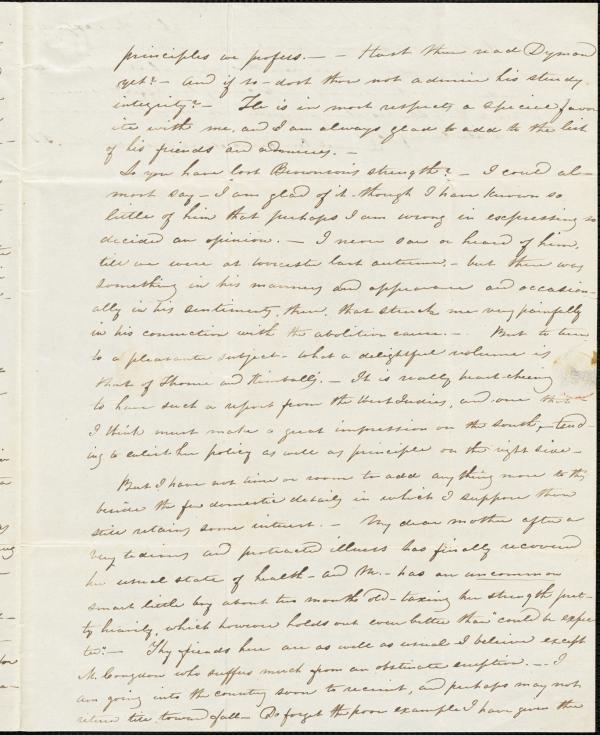 principles we profess. — — Hast thou read Dymond
yet? — And if so - dost thou not admire his sturdy
integrity? — He is in most respects a special favor
ite with me, and I am always glad to add to the list
of his friends and admirers. —
So you have lost Brownson's strength? — I could al-
most say — I am glad of it. though I have known so
little of him that perhaps I am wrong in expressing so
decided an opinion. — I never saw or heard of him,
till we were at Worcester last autumn. — but there was
something in his manners and appearance and occasion-
ally in his sentiments, then, that struck me very painfully
in his connection with the abolition cause. — But to turn
to a pleasanter subject - what a delightful volume is
that of Thome and Kimball's. — It is really heart-cheering
to have such a report from the West Indies, and one that
I think must make a great impression on the south, — tend-
ing to enlist her policy as well as principle on the right side —
But I have not time or room to add any thing more to this
beside the few domestic details in which I suppose thou
still retains some interest. — My dear mother after a
very tedious and protracted illness has finally recovered
her usual state of health — and M. — has an uncommon
smart little boy about ten months old — taxing her strength pret-
ty heavily, which however holds out even better than could be expec
ted. — Thy friends here are as well as usual I believe except
M. Congdon who suffers much from an obstinate eruption. — I
am going into the country soon to recruit, and perhaps may not
return till toward fall — Do forget the poor example I have given thee